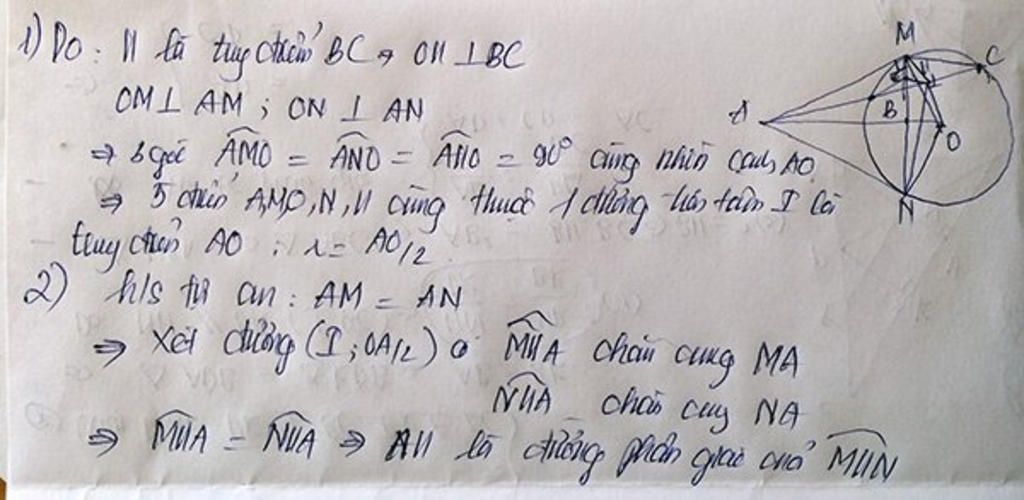 1) Do: H là trung điểm BC → OH ⊥ BC
OM ⊥ AM ; ON ⊥ AN
⇒ 3 góc AMO = ANO = AHO = 90° cùng nhìn cạnh AO
⇒ 5 điểm A,M,O,N,H cùng thuộc 1 đường tròn tâm I là
trung điểm AO ; r = AO/2
2) h/s tự cm : AM = AN
⇒ Xét đường (I ; OA/2) có MHA chắn cung MA
NHA chắn cung NA
⇒ MHA = NHA ⇒ AH là đường phân giác của MHN
M
C
H
A
B
O
N